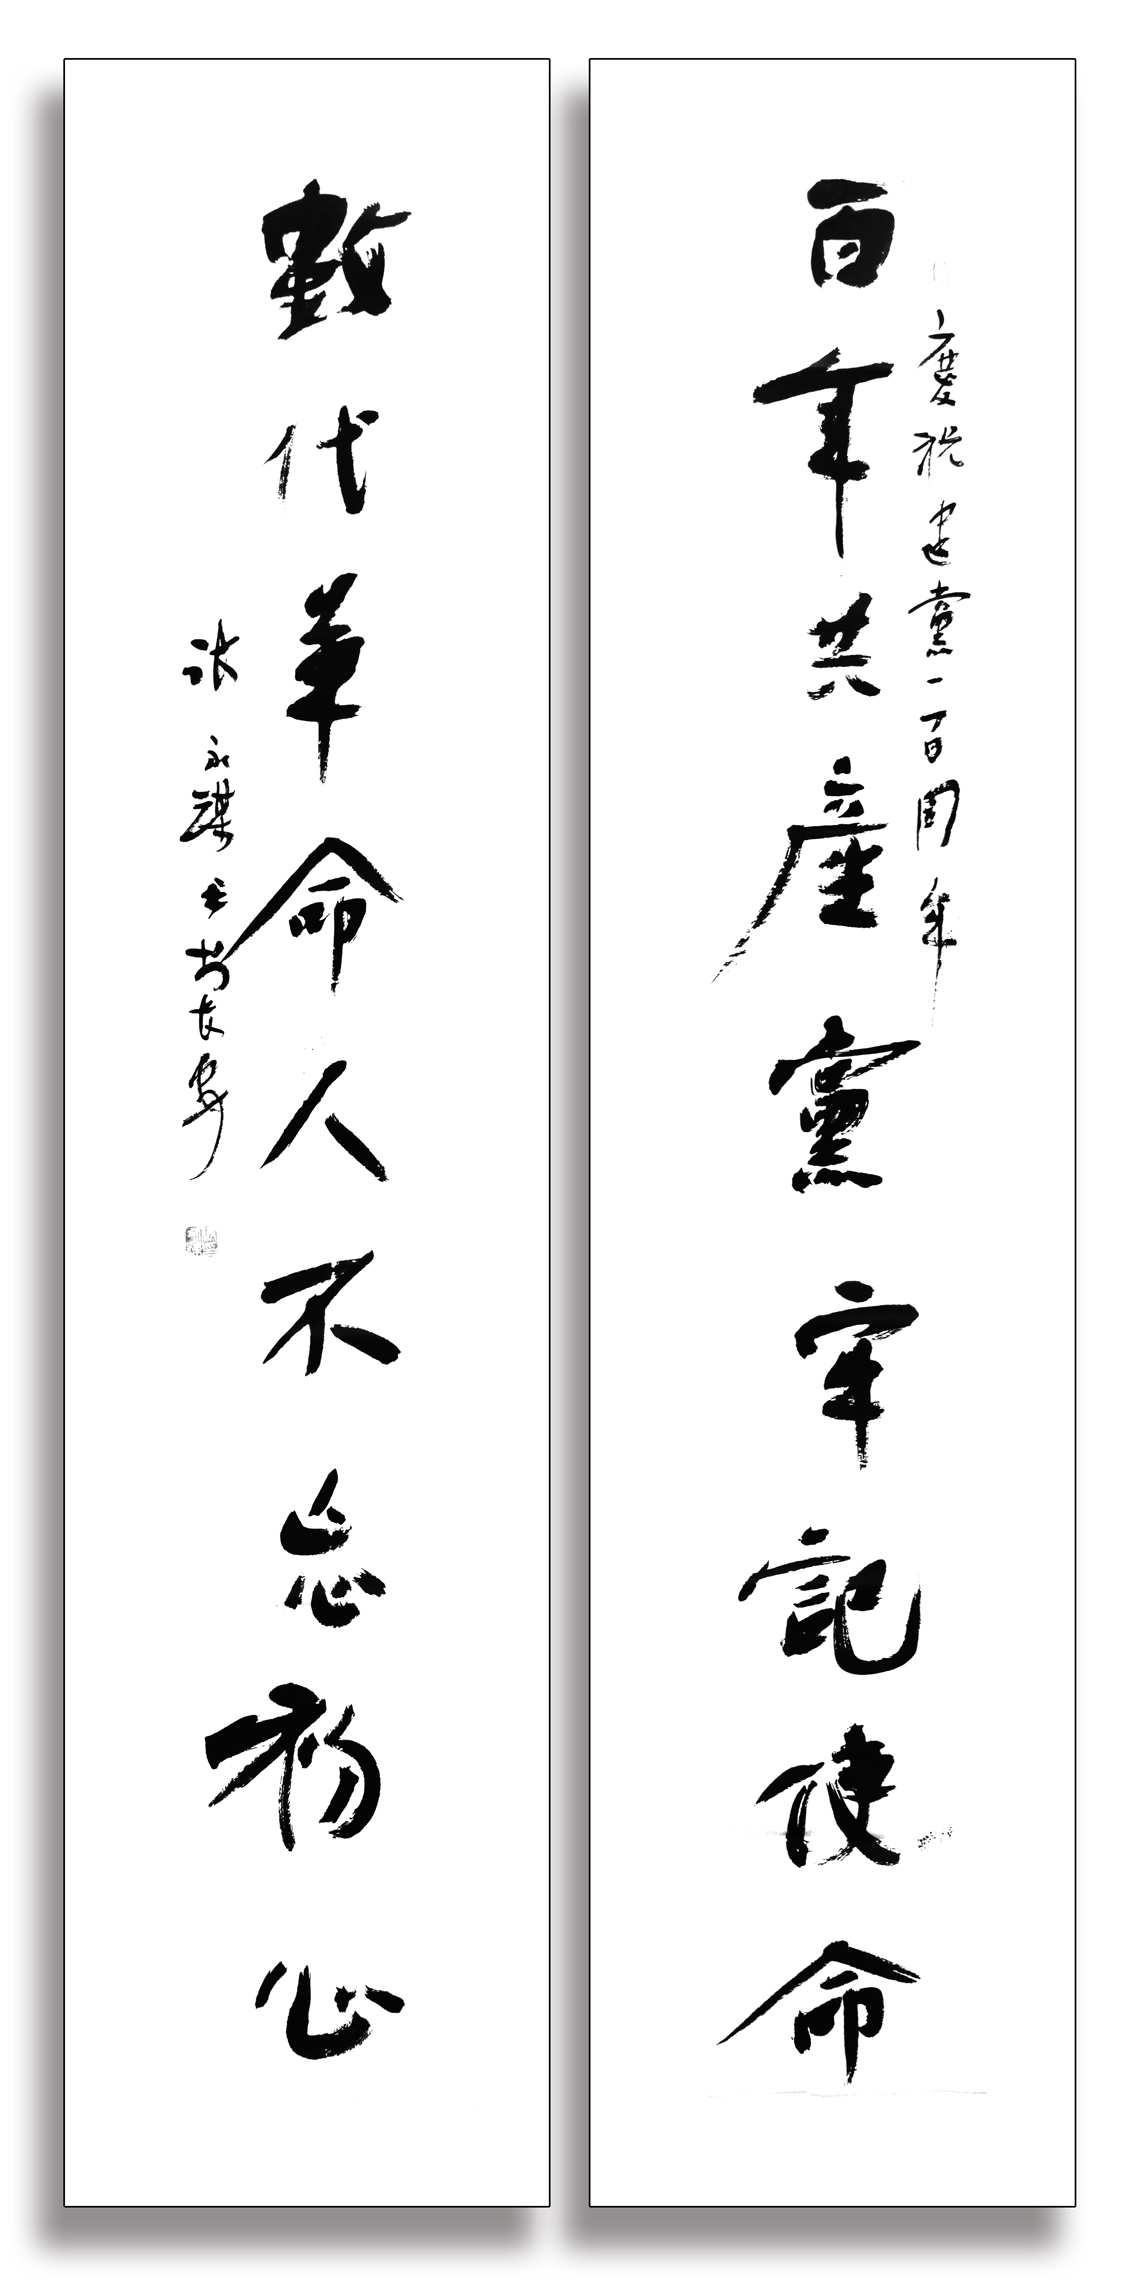 慶祝建黨一百周年
百年共產黨牢記使命
數代革命人不忘初心
張永謀書於長安